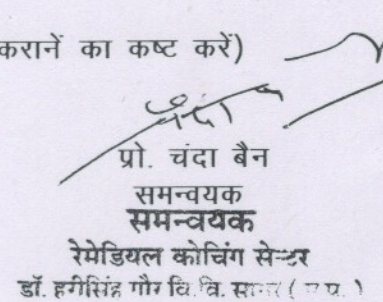 करानें का कष्ट करें)
चंदा
प्रो. चंदा बैन
समन्वयक
समन्वयक
रेमेडियल कोचिंग सेन्टर
डॉ. हरीसिंह गौर वि. वि. सागर ( म.प्र. )